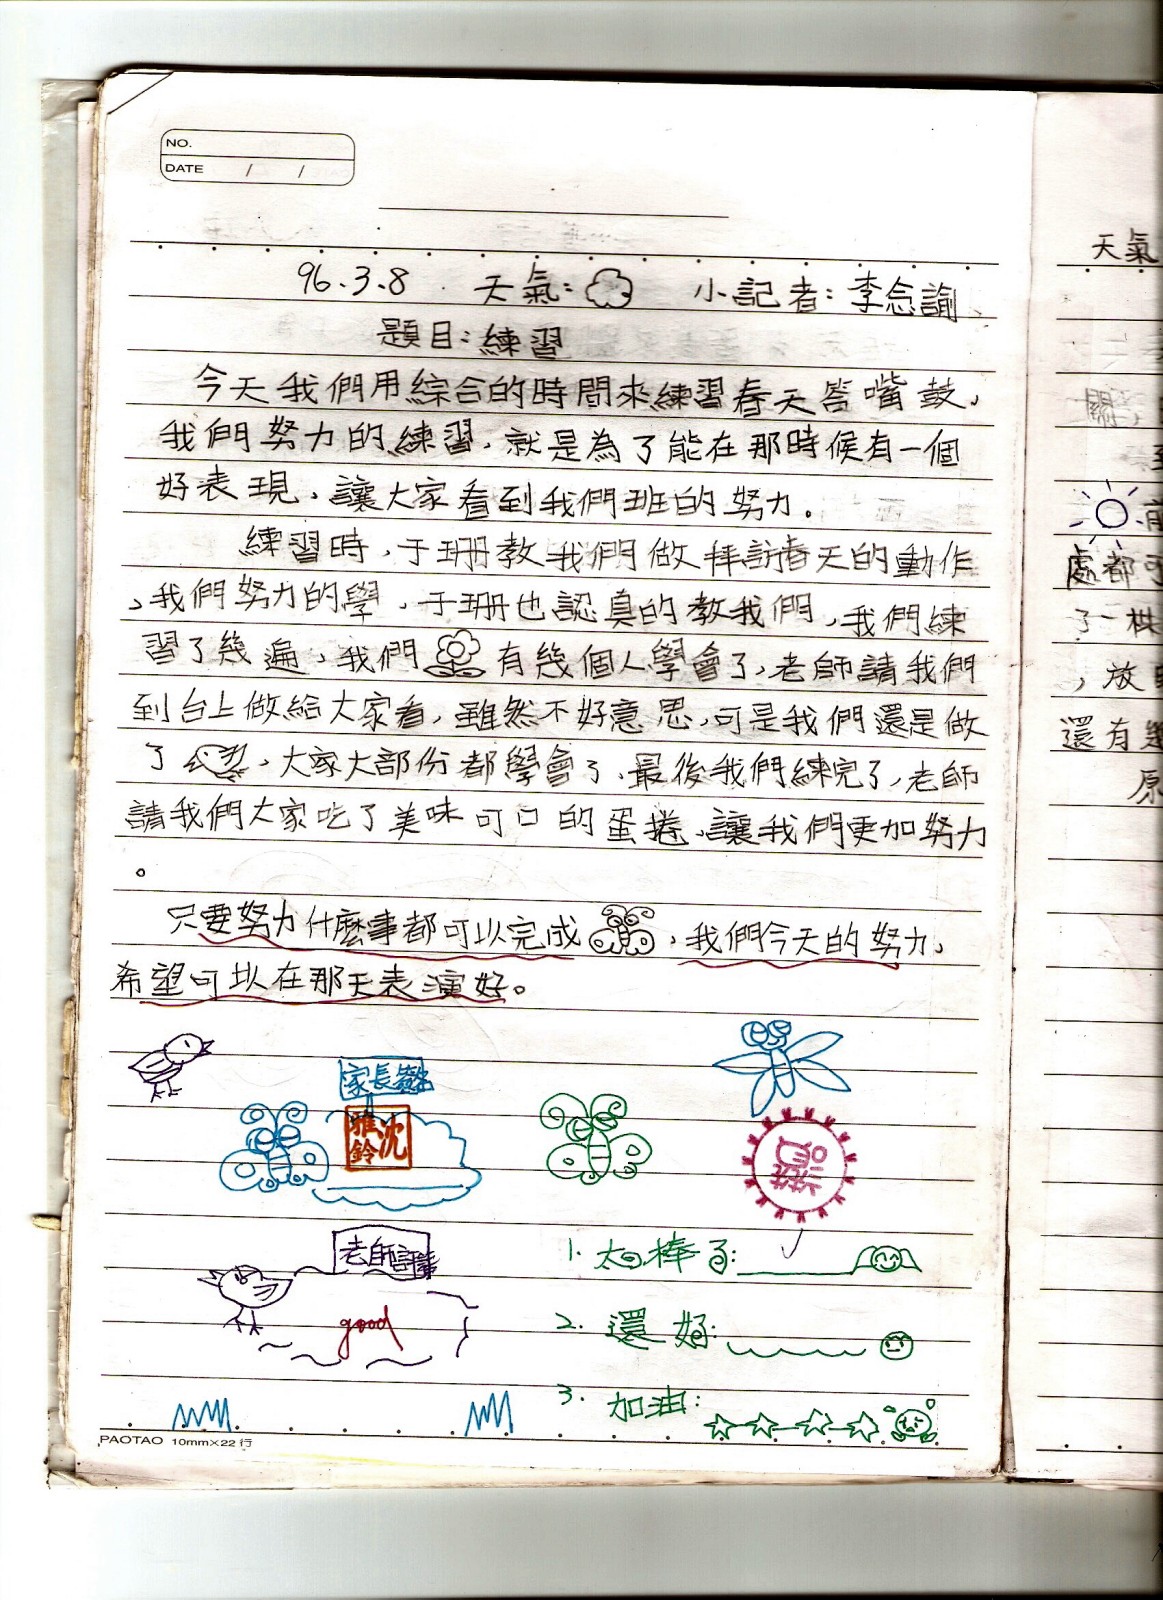 NO.
DATE / /
96.3.8 天氣: 小記者:李念諭
題目:練習
今天我們用綜合的時間來練習春天答嘴鼓,
我們努力的練習,就是為了能在那時候有一個
好表現,讓大家看到我們班的努力。
練習時,于珊教我們做拜訪春天的動作
,我們努力的學,于珊也認真的教我們,我們練
習了幾遍,我們有幾個人學會了,老師請我們
到台上做給大家看,雖然不好意思,可是我們還是做
了,大家大部份都學會了,最後我們練完了,老師
請我們大家吃了美味可口的蛋捲,讓我們更加努力
。
只要努力什麼事都可以完成,我們今天的努力,
希望可以在那天表演好。
家長簽名
沈雅鈴
老師評語
good
1. 太棒了:
2. 還好:
3. 加油:
PAOTAO 10mm×22行
天氣
處都可
了一棵
,放
還有幾
原